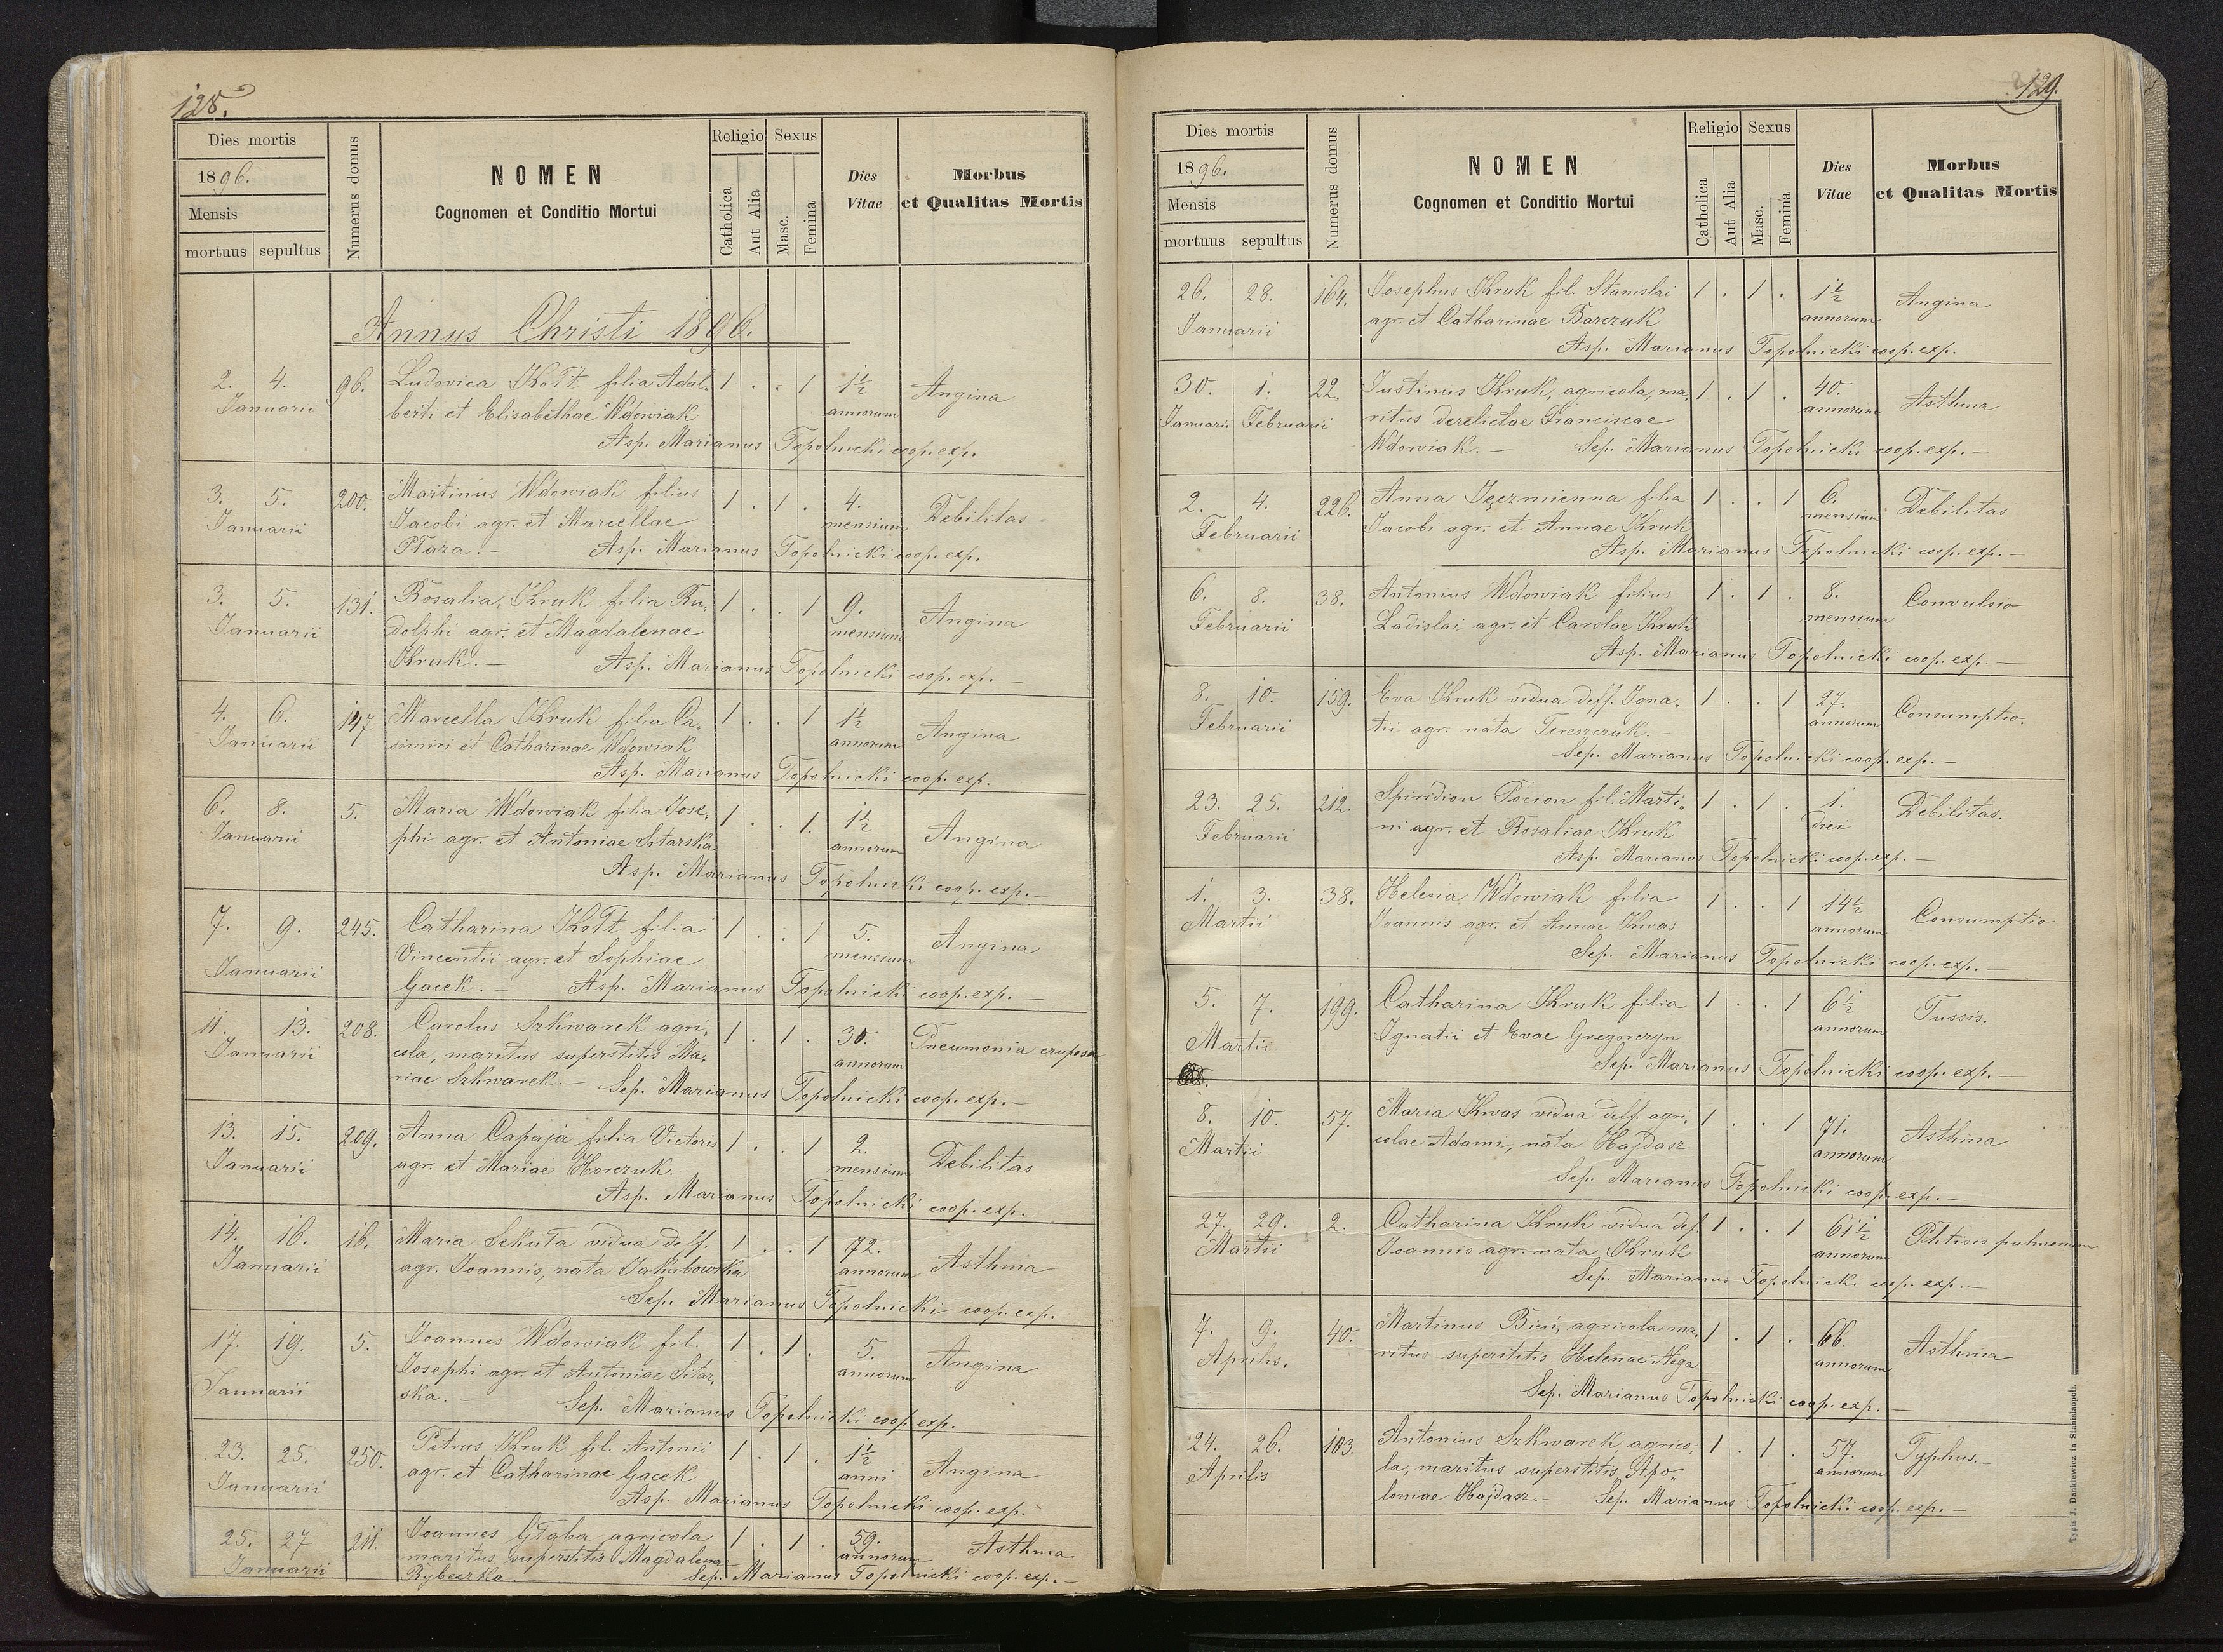 128.
Dies mortis
1896.
Mensis
mortuus sepultus
Numerus domus
NOMEN
Cognomen et Conditio Mortui
Religio
Catholica
Aut Alia
Sexus
Masc.
Femina
Dies
Vitae
Morbus
et Qualitas Mortis
Annus Christi 1896.
2. 4. 96. Ludovica Kołt filia Adal- 1 . . 1 1½ Angina
Januarii berti et Elisabethae Wdowiak annorum
Asp. Marianus Topolnicki coop. exp.
3. 5. 200. Martinus Wdowiak filius 1 . 1 . 4. Debilitas
Januarii Jacobi agr. et Marcellae mensium
Płaza. – Asp. Marianus Topolnicki coop. exp.
3. 5. 131. Rosalia Kruk filia Ru- 1 . . 1 9. Angina
Januarii dolphi agr. et Magdalenae mensium
Kruk. – Asp. Marianus Topolnicki coop. exp. –
4. 6. 147 Marcella Kruk filia Ca- 1 . . 1 1½ Angina
Januarii simiri et Catharinae Wdowiak annorum
Asp. Marianus Topolnicki coop. exp.
6. 8. 5. Maria Wdowiak filia Jose- 1 . . 1. 1½ Angina
Januarii phi agr. et Antoniae Sitarska annorum
Asp. Marianus Topolnicki coop. exp. –
7. 9. 245. Catharina Kołt filia 1 . . 1 5. Angina
Januarii Vincentii agr. et Sophiae mensium
Gacek. – Asp. Marianus Topolnicki coop. exp. –
11. 13. 208. Carolus Szkwarek agri- 1 . 1 . 30. Pneumonia cruposa
Januarii cola, maritus superstitis Ma- annorum
riae Szkwarek. – Sep. Marianus Topolnicki coop. exp. –
13. 15. 209. Anna Capaja filia Victoris 1 . . 1 2. Debilitas
Januarii agr. et Mariae Horczuk. – mensium
Asp. Marianus Topolnicki coop. exp.
14. 16. 16. Maria Sekuła vidua deff. 1 . . 1 72. Asthma
Januarii agr. Joannis, nata Jakubowska annorum
Sep. Marianus Topolnicki coop. exp.
17. 19. 5. Joannes Wdowiak fil. 1 . 1 . 5. Angina
Januarii Josephi agr. et Antoniae Sitar- annorum
ska. – Sep. Marianus Topolnicki coop. exp.
23. 25. 250. Petrus Kruk fil. Antonii 1 . 1 . 1½ Angina
Januarii agr. et Catharinae Gacek anni
Asp. Marianus Topolnicki coop. exp.
25. 27 211. Joannes Głąba agricola 1 . 1 . 59. Asthma
Januarii maritus superstitis Magdalenae annorum
Rybeczka. Sep. Marianus Topolnicki coop. exp. –
129.
Dies mortis
1896.
Mensis
mortuus sepultus
Numerus domus
NOMEN
Cognomen et Conditio Mortui
Religio
Catholica
Aut Alia
Sexus
Masc.
Femina
Dies
Vitae
Morbus
et Qualitas Mortis
26. 28. 164. Josephus Kruk fil. Stanislai 1 . 1 . 1½ Angina
Januarii agr. et Catharinae Barczuk annorum
Asp. Marianus Topolnicki coop. exp.
30. 1. 22. Justinus Kruk, agricola, ma- 1 . 1 . 40. Asthma
Januarii Februarii ritus derelictae Franciscae annorum
Wdowiak. – Sep. Marianus Topolnicki coop. exp. –
2. 4. 226. Anna Jęczmienna filia 1 . . 1 6. Debilitas
Februarii Jacobi agr. et Annae Kruk mensium
Asp. Marianus Topolnicki coop. exp. –
6. 8. 38. Antonius Wdowiak filius 1 . 1 . 8. Convulsio
Februarii Ladislai agr. et Carolae Kruk mensium
Asp. Marianus Topolnicki coop. exp. –
8. 10. 159. Eva Kruk vidua deff. Igna- 1 . . 1 27. Consumptio.
Februarii tii agr. nata Tereszczuk. – annorum
Sep. Marianus Topolnicki coop. exp. –
23. 25. 212. Spiridion Pocion fil. Marti- 1 . 1 . 1. Debilitas.
Februarii ni agr. et Rosaliae Kruk diei
Asp. Marianus Topolnicki coop. exp. –
1. 3. 38. Helena Wdowiak filia 1 . . 1 14½ Consumptio
Martii Joannis agr. et Annae Kwas annorum
Sep. Marianus Topolnicki coop. exp. –
5. 7. 199. Catharina Kruk filia 1 . . 1 6½ Tussis.
Martii Ignatii et Evae Gregorczyn annorum
Sep. Marianus Topolnicki coop. exp. –
8. 10. 57. Maria Kwas vidua deff. agri- 1 . . 1 71. Asthma
Martii colae Adami, nata Hajdasz annorum
Sep. Marianus Topolnicki coop. exp. –
27. 29. 2. Catharina Kruk vidua def. 1 . . 1 61½ Phtisis pulmonum
Martii Joannis agr. nata Kruk annorum
Sep. Marianus Topolnicki coop. exp. –
7. 9. 40. Martinus Bieś, agricola ma- 1 . 1 . 66. Asthma
Aprilis. ritus superstitis Helenae Noga annorum
Sep. Marianus Topolnicki coop. exp. –
24. 26. 103. Antonius Szkwarek, agrico- 1 . 1 . 57. Typhus. –
Aprilis la, maritus superstitis Apo- annorum
loniae Hajdasz. – Sep. Marianus Topolnicki coop. exp. –
Typis J. Dankiewicz in Stanislaopoli.